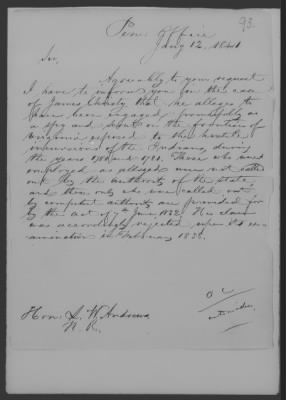 93
Pen. Office
Jany 12. 1841
Sir,
Agreeably to your request
I have to inform you for the case
of James Christy that he alleges to
have been engaged, principally as
a spy and scout on the frontiers of
Virginia exposed to the hostile
incursions of the Indians, during
the years 1780 and 1781. Those who were
employed as alleged were not called
out by the authority of the state,
and those only who were called out
by competent authority are provided for
by the act of 7th June 1832. His claim
was accordingly rejected upon its ex-
amination in February 1836.
Hon: L. W. Andrews
H. R.